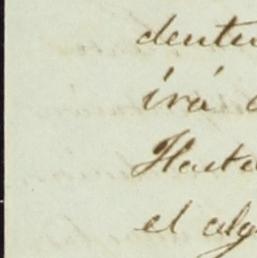 dentu
irá
Hasta
el alg